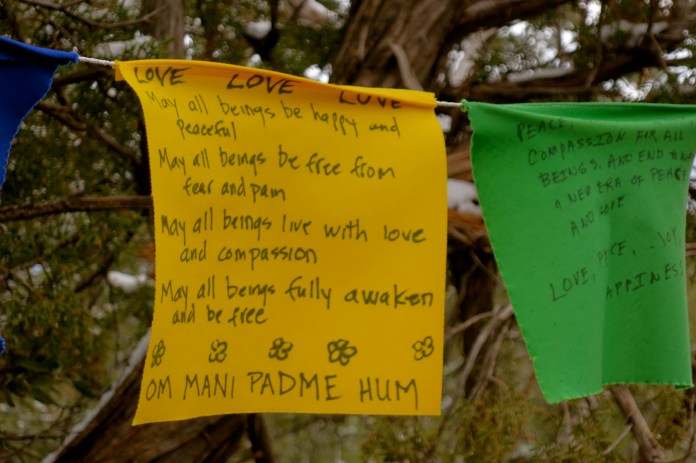 LOVE LOVE LOVE
May all beings be happy and
peaceful
May all beings be free from
fear and pain
May all beings live with love
and compassion
May all beings fully awaken
and be free
OM MANI PADME HUM
PEACE,
COMPASSION FOR ALL
BEINGS. AND END
A NEW ERA OF PEACE
AND LOVE
LOVE, PEACE, JOY,